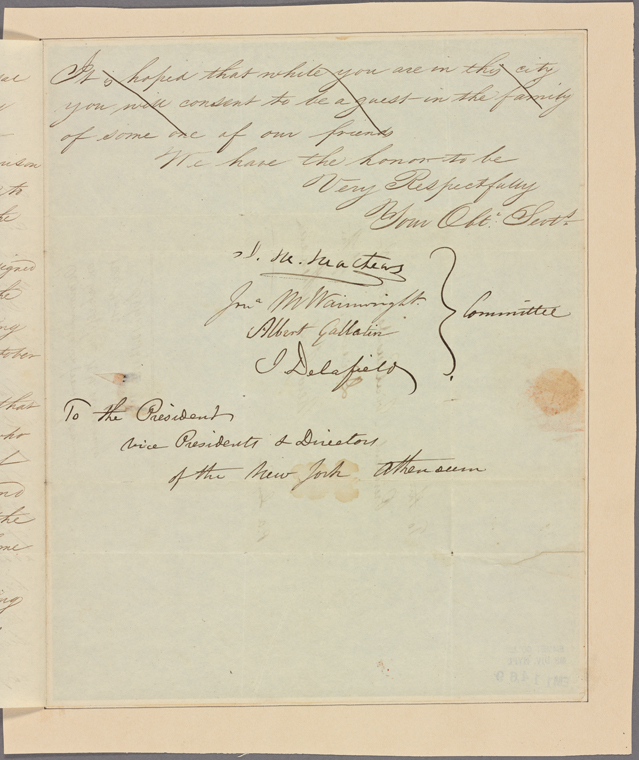 It is hoped that while you are in this city
you will consent to be a guest in the family
of some one of our friends
We have the honor to be
Very Respectfully
Your Obt. Servts.
J. M. Mathews
Jna M Wainwright
Albert Gallatin
J Delafield
Committee
To the President
vice Presidents & Directors
of the New York Atheneum